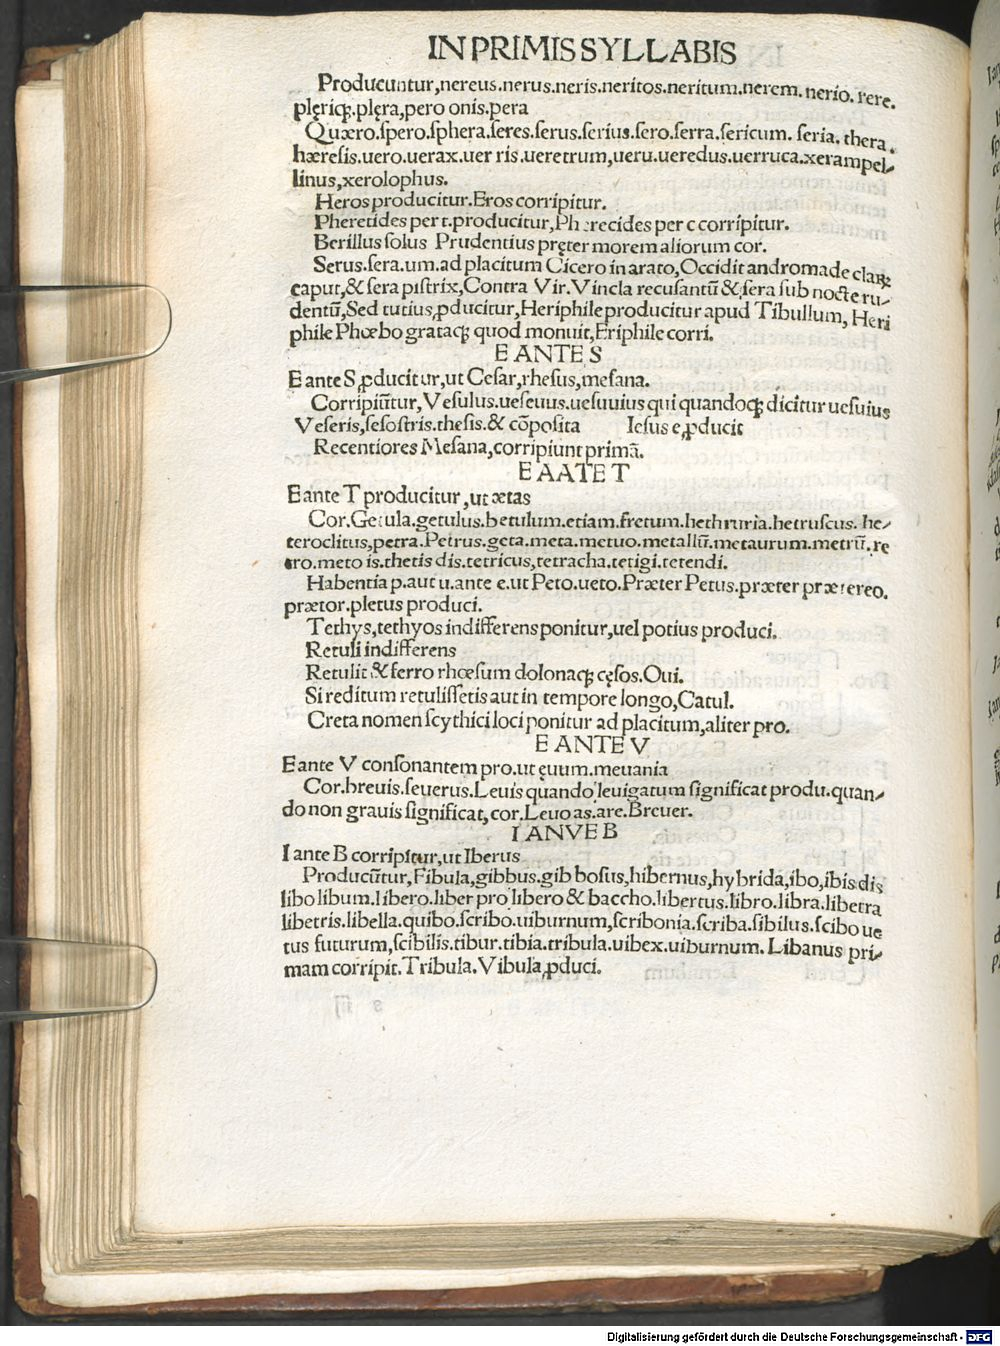 IN PRIMIS SYLLABIS
Producuntur,nereus.nerus.neris.neritos.neritum.nerem.nerio.rere.
plęriqꝫ.plęra,pero onis.pera
Quæro.ſpero.ſphera.ſeres.ſerus.ſerius.ſero.ſerra.ſericum.ſeria.thera.
hæreſis.uero.uerax.uer ris.ueretrum,ueru.ueredus.uerruca.xerampel-
linus,xerolophus.
Heros producitur.Eros corripitur.
Pheretides per t.producitur,Pherecides per c corripitur.
Berillus ſolus Prudentius pręter morem aliorum cor.
Serus.ſera.um.ad placitum Cicero in arato,Occidit andromade claꝝ
caput,& ſera piſtrix,Contra Vir.Vincla recuſantū & ſera ſub nocte ru-
dentū,Sed tutius,ꝓducitur,Heriphile producitur apud Tibullum, Heri
phile Phœbo grataqꝫ quod monuit,Eriphile corri.
E ANTE S
E ante S ꝓducitur,ut Ceſar,rheſus,meſana.
Corripiūtur,Veſulus.ueſeuus.ueſuuius qui quandoqꝫ dicitur ueſuius
Veſeris,ſeſoſtris.theſis.& cōpoſita Ieſus e,ꝓducit
Recentiores Meſana,corripiunt primā.
E AATE T
E ante T producitur,ut ætas
Cor.Getula.getulus.betulum.etiam.fretum.hethruria.hetruſcus.he-
teroclitus,petra.Petrus.geta.meta.metuo.metallū.metaurum.metrū.re
tro.meto is.thetis dis.tetricus,tetracha.tetigi.tetendi.
Habentia p.aut u.ante e.ut Peto.ueto.Præter Petus.præter prætereo.
prætor.pletus produci.
Tethys,tethyos indifferens ponitur,uel potius produci.
Retuli indifferens
Retulit & ferro rhœſum dolonaqꝫ cęſos.Oui.
Si reditum retuliſſetis aut in tempore longo,Catul.
Creta nomen ſcythici loci ponitur ad placitum,aliter pro.
E ANTE V
E ante V conſonantem pro.ut ęuum.meuania
Cor.breuis.ſeuerus.Leuis quando leuigatum ſignificat produ.quan-
do non grauis ſignificat,cor.Leuo as.are.Breuer.
I ANVE B
I ante B corripitur,ut Iberus
Producūtur,Fibula,gibbus.gibboſus,hibernus,hybrida,ibo,ibis dis
libo libum.libero.liber pro libero & baccho.libertus.libro.libra.libetra
libetris.libella.quibo.ſcribo.uiburnum,ſcribonia.ſcriba.ſibilus.ſcibo ue
tus futurum,ſcibilis.tibur.tibia.tribula.uibex.uiburnum. Libanus pri-
mam corripit.Tribula.Vibula,ꝓduci.
Digitalisierung gefördert durch die Deutsche Forschungsgemeinschaft - DFG